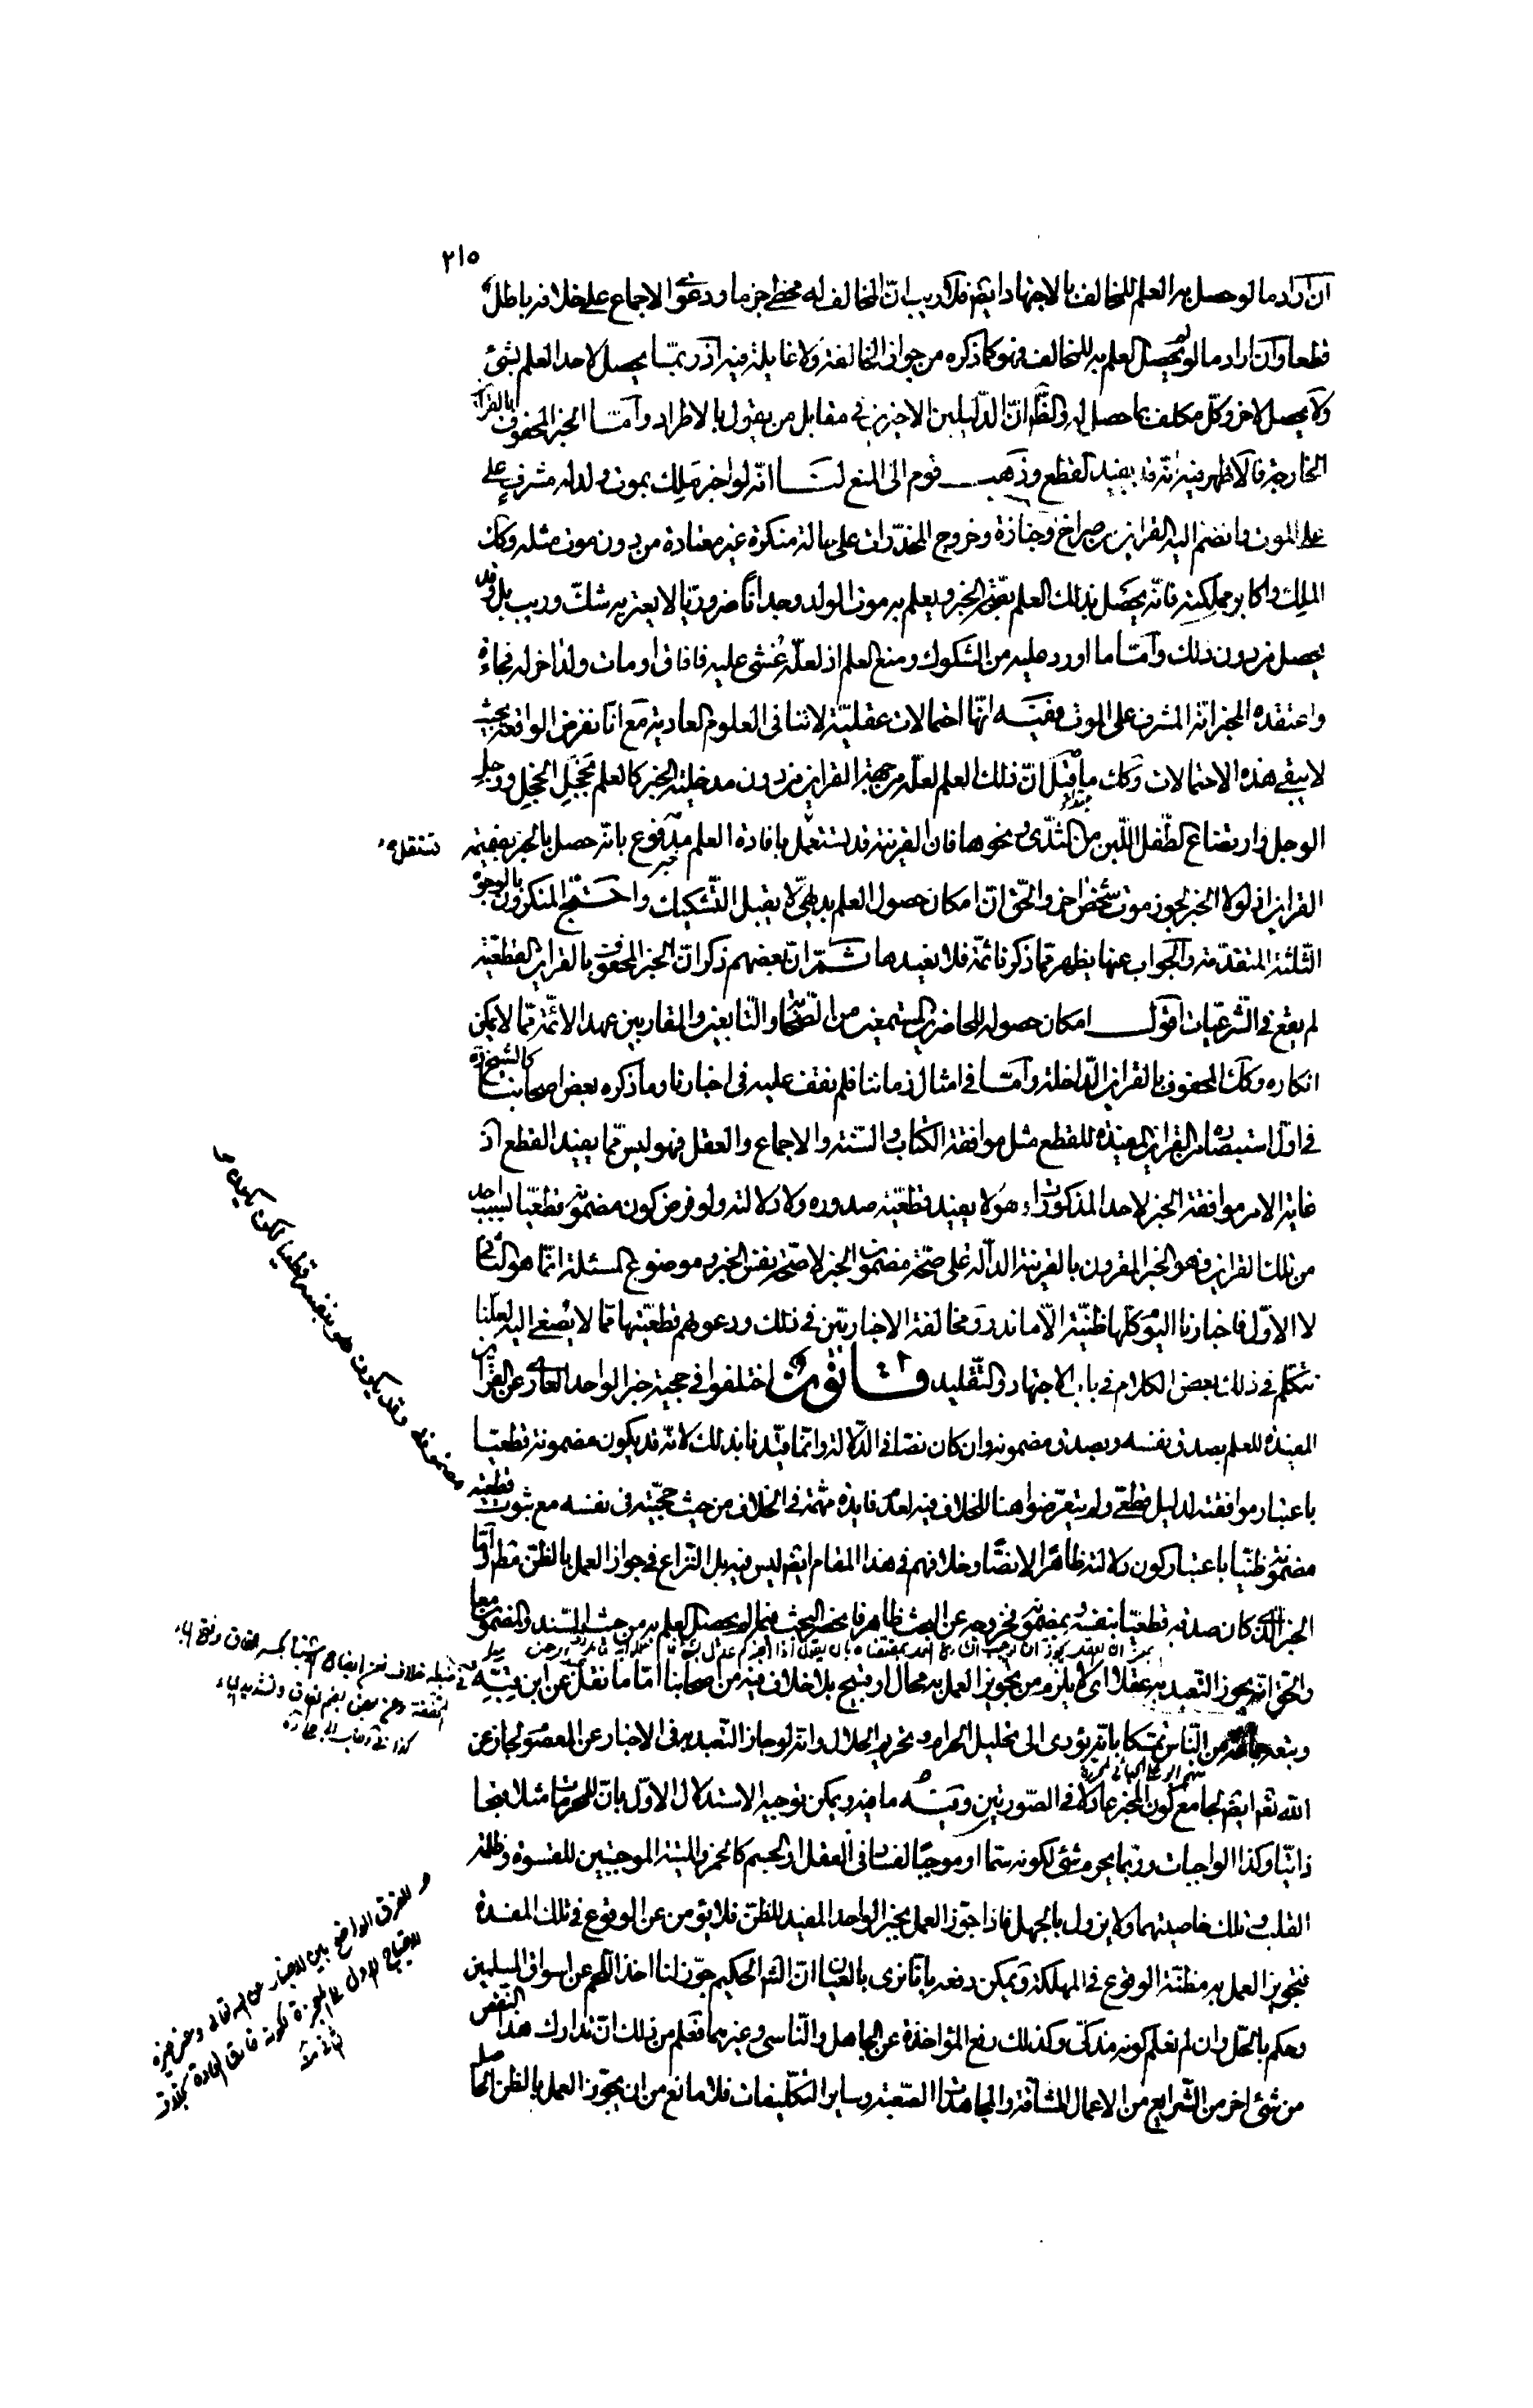 ٢١٥
ان اراد ما لو حصل به العلم للمخالف بالاجتهاد ايضم فلا ريب ان المخالف له مخطئ جزما ودعوى الاجماع على خلافه باطل
قطعا وان اراد ما لو لم يحصل العلم به للمخالف فهو كما ذكره من جواز المخالفة ولا غايلة فيه اذ ربما يحصل لاحد العلم بشئ
ولا يحصل لاخر وكل مكلف بما حصل له والظ ان الدليلين الاخيرين في مقابل من يقول بالاطراد واما الخبر المحفوف بالقراين
الخارجة فالاظهر فيه انه قد يفيد القطع وذهب قوم الى المنع لنا انه لو اخبر ملك بموت ولد له مشرف على
على الموت وانضم اليه القراين من صراخ وجنازة وخروج المخدرات على حالة منكرة غير معتادة من دون موت مثله وكك
الملك واكابر مملكته فانه يحصل بذلك العلم بصحة الخبر ويعلم به موت الولد وجدانا ضروريا لا يعتريه شك وريب بل وقد
يحصل من دون ذلك واما ما اورد عليه من الشكوك ومنع العلم اذ لعله غشى عليه فافاق او مات ولد اخر له فجاءة
واعتقده المخبر انه المشرف على الموت ففيه انها احتمالات عقلية لا تنافى العلوم العادية مع انا نفرض الواقعة بحيث
لا يبقى هذه الاحتمالات وكك ما قيل ان ذلك العلم لعله من جهة القراين من دون مدخلية الخبر كالعلم بخجل الخجل ووجل
الوجل وارتضاع الطفل اللبن من الثدى ونحوها فان القرينة قد تستقل بافادة العلم مدفوع بانه حصل بالخبر بضميمة
تستقل
القراين اذ لولا الخبر لجوز موت شخص اخر والحق ان امكان حصول العلم بديهي لا يقبل التشكيك واحتج المنكرون بالوجوه
الثلثة المتقدمة والجواب عنها يظهر مما ذكرنا ثمة فلا نعيدها ثم ان بعضهم ذكر ان الخبر المحفوف بالقراين القطعية
لم يقع في الشرعيات اقول امكان حصوله للحاضرين المستمعين من الصحابة والتابعين والمقاربين عهد الائمة مما لا يمكن
انكاره وكك المحفوف بالقراين الداخلة واما في امثال زماننا فلم نقف عليه في اخبارنا وما ذكره بعض اصحابنا كالشيخ ره
في اول استبصاره من القراين المفيدة للقطع مثل موافقة الكتاب والسنة والاجماع والعقل فهو ليس مما يفيد القطع اذ
غاية الامر موافقة الخبر لاحد المذكورات وهو لا يفيد قطعية صدوره ولا دلالته ولو فرض كون مضمونه قطعيا بسبب احد
من تلك القراين فهو الخبر المقرون بالقرينة الدالة على صحة مضمون الخبر لا صحة نفس الخبر وموضوع المسئلة انما هو الثاني
لا الاول فاخبارنا اليوم كلها ظنية الا ما ندر ومخالفة الاخباريين في ذلك ودعوهم قطعيتها مما لا يصغى اليه لعلنا
نتكلم في ذلك بعض الكلام في باب الاجتهاد والتقليد قانون اختلفوا في حجية خبر الواحد العاري عن القراين
المفيدة للعلم بصدق نفسه وبصدق مضمونه وان كان نصا في الدلالة وانما قيدنا بذلك لانه قد يكون مضمونه قطعيا
باعتبار موافقته لدليل قطعي ولم يتعرضوا هنا للخلاف فيه لعدم فايدة مهمة في الخلاف من حيث حجيته في نفسه مع ثبوت قطعية
مضمونه وقد يكون هو بنفسه قطعيا
مضمونه ظنيا باعتبار كون دلالته ظاهرا لا نصا وخلافهم في هذا المقام ايضم ليس فيه بل النزاع في جواز العمل بالظن مطم واما
الخبر الذي كان صدقه قطعيا بنفسه وبمضمونه فخروجه عن البحث ظاهر فانحصر البحث فيما لم يحصل العلم به من حيث السند والمضمون معا
والحق انه يجوز التعبد به عقلا اي لا يلزم من تجويز العمل به محال او قبيح بلا خلاف فيه من اصحابنا الا ما نقل عن ابن قبة
وتبعه جماعة من الناس تمسكا بانه يؤدى الى تحليل الحرام وتحريم الحلال وانه لو جاز التعبد به في الاخبار عن المعصوم لجاز عن
منهم ابو على الجبائى
الله تعم ايضم لجامع كون المخبر عادلا في الصورتين وفيه ما فيه ويمكن توجيه الاستدلال الاول بان للمحرمات مثلا قبحا
ذاتيا وكذا الواجبات وربما يحرم شئ لكونه سما او موجبا لفساد في العقل او الجسم كالخمر والميتة الموجبتين للقسوة وظلمة
القلب وتلك خاصيتهما ولا يزول بالجهل فاذا جوز العمل بخبر الواحد المفيد للظن فلا يؤمن عن الوقوع في تلك المفسدة
فتجويز العمل به مظنة الوقوع في المهلكة ويمكن دفعه بانا نرى بالعيان ان الشرع الحكيم جوز لنا اخذ اللحم عن اسواق المسلمين
وحكم بالحل وان لم نعلم كونه مذكى وكذلك رفع المؤاخذة عن الجاهل والناسى وغيرهما فعلم من ذلك ان تدارك هذا النقص
من شئ اخر من الشرايع من الاعمال الشاقة والمجاهدات الصعبة وساير التكليفات فلا مانع من ان يجوز العمل بالظن الحاصل
للفرق الواضح بين الاخبار عن الله تعالى وعن غيره